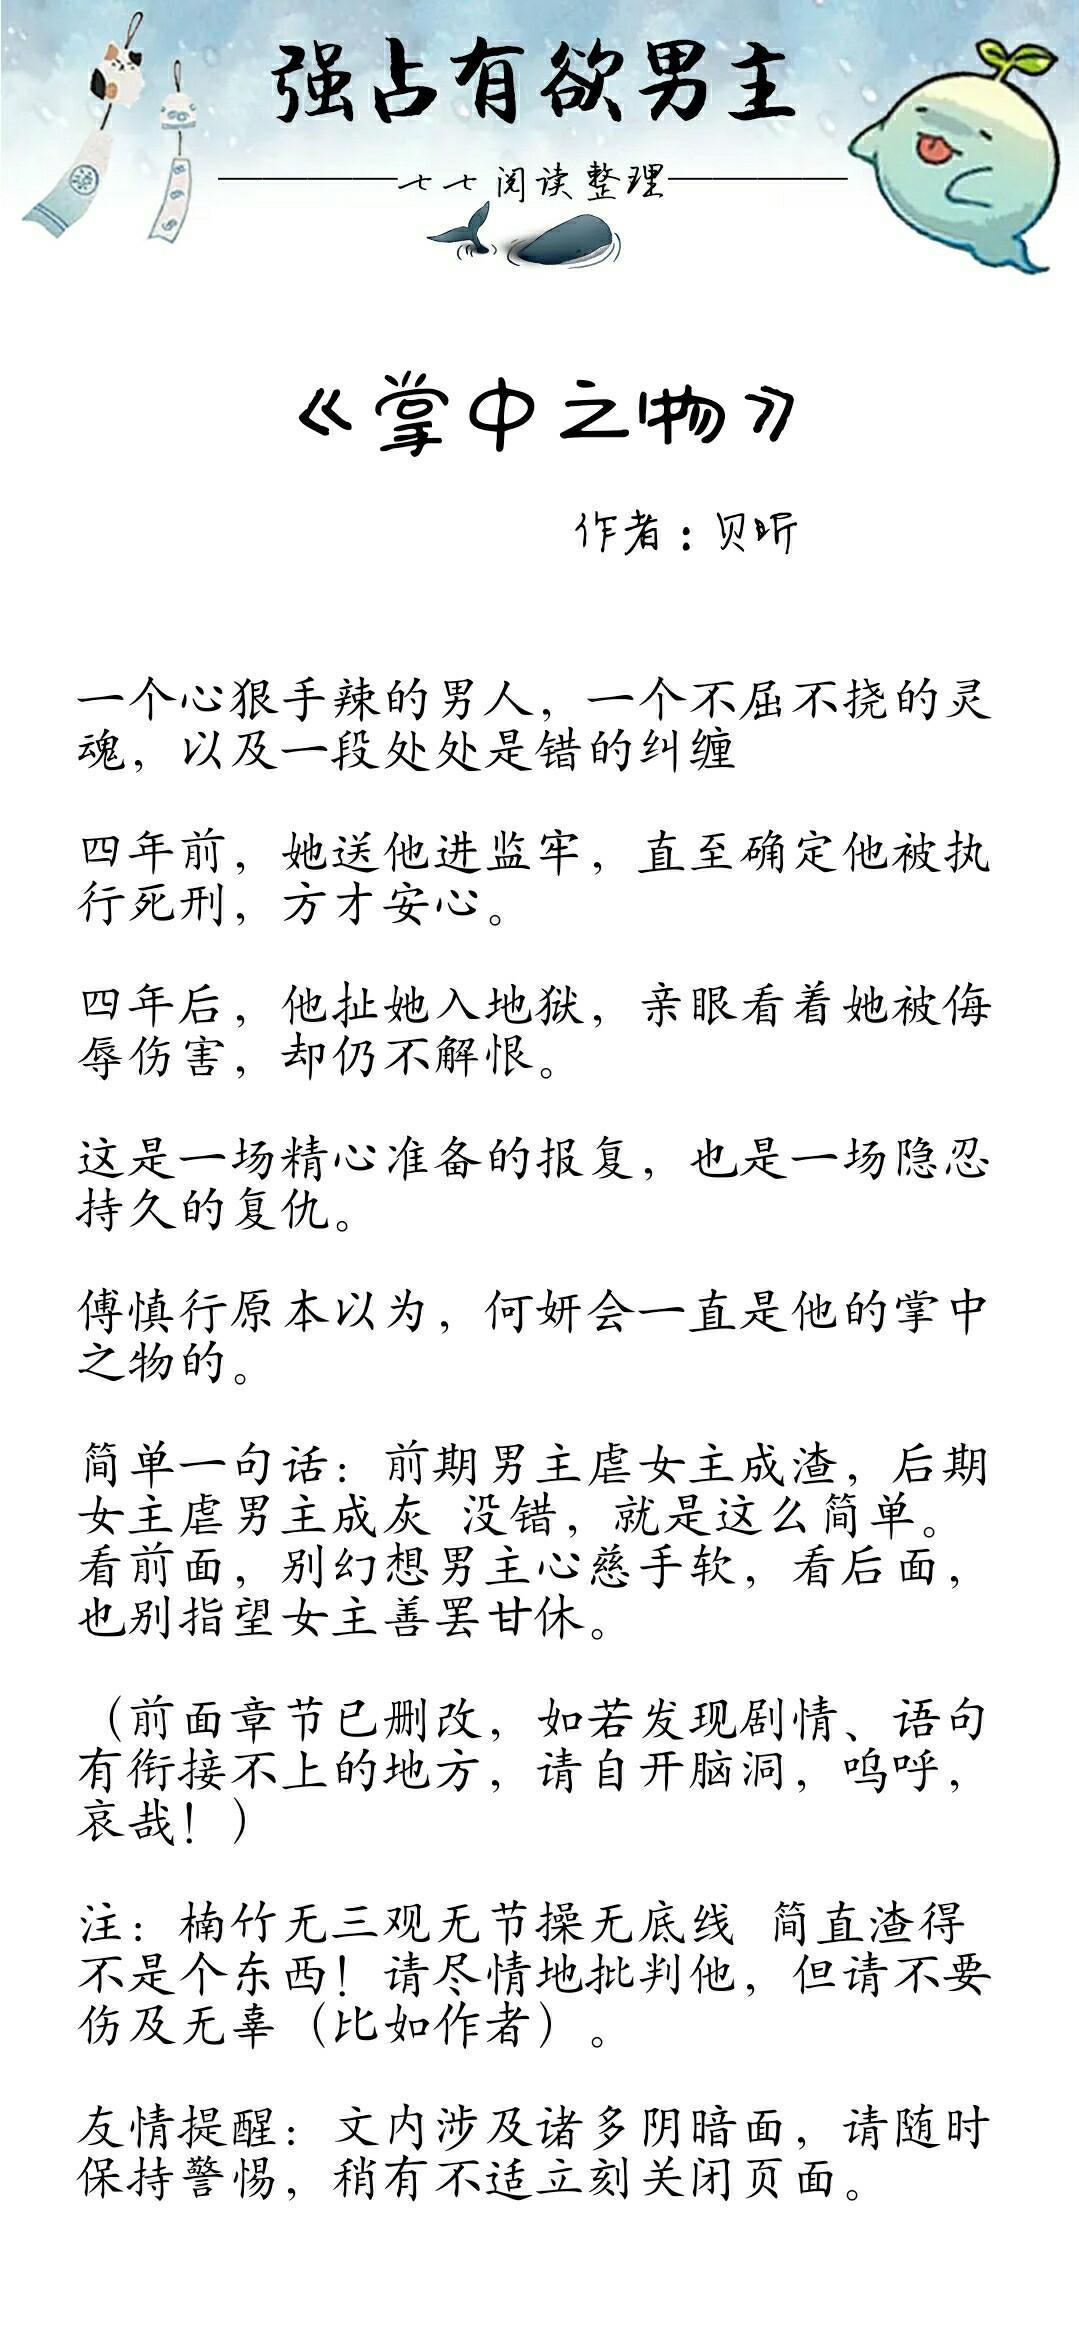 强占有欲男主
七七阅读整理
《掌中之物》
作者：贝昕
一个心狠手辣的男人，一个不屈不挠的灵
魂，以及一段处处是错的纠缠
四年前，她送他进监牢，直至确定他被执
行死刑，方才安心。
四年后，他扯她入地狱，亲眼看着她被侮
辱伤害，却仍不解恨。
这是一场精心准备的报复，也是一场隐忍
持久的复仇。
傅慎行原本以为，何妍会一直是他的掌中
之物的。
简单一句话：前期男主虐女主成渣，后期
女主虐男主成灰 没错，就是这么简单。
看前面，别幻想男主心慈手软，看后面，
也别指望女主善罢甘休。
（前面章节已删改，如若发现剧情、语句
有衔接不上的地方，请自开脑洞，呜呼，
哀哉！）
注：楠竹无三观无节操无底线 简直渣得
不是个东西！请尽情地批判他，但请不要
伤及无辜（比如作者）。
友情提醒：文内涉及诸多阴暗面，请随时
保持警惕，稍有不适立刻关闭页面。